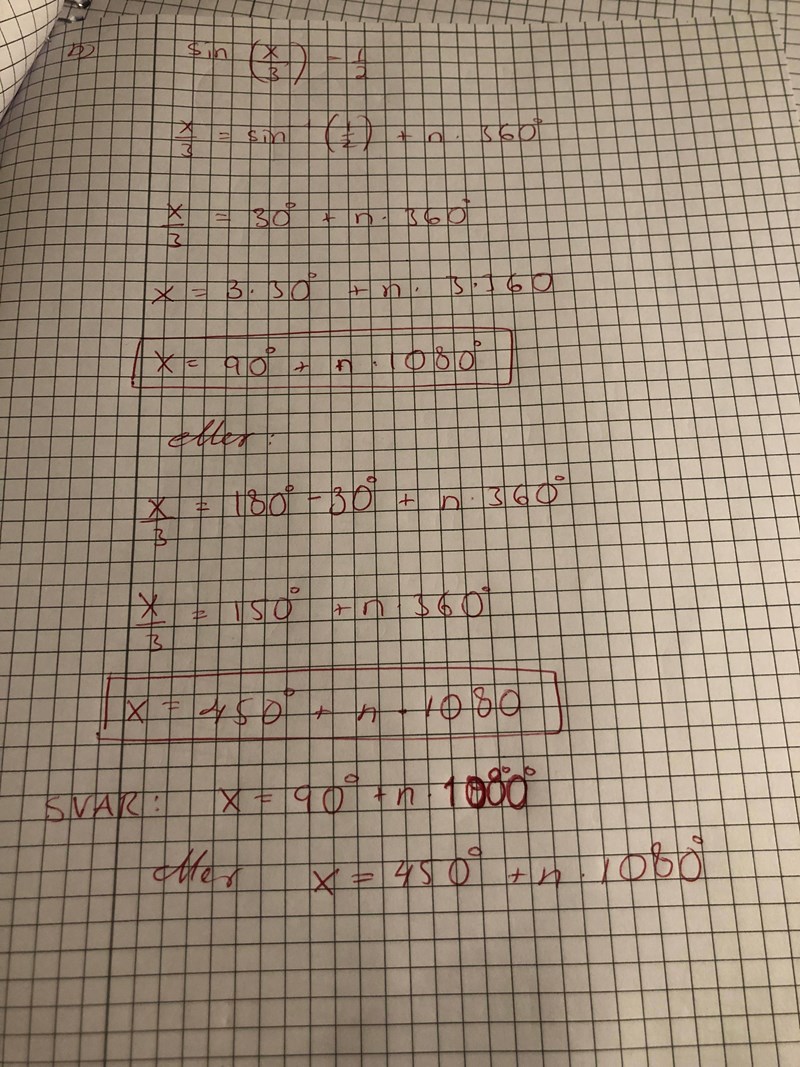 b) sin (x/3) = 1/2
x/3 = sin⁻¹ (1/2) + n · 360°
x/3 = 30° + n · 360°
x = 3·30° + n · 3·360
x = 90° + n · 1080°
eller:
x/3 = 180° - 30° + n · 360°
x/3 = 150° + n 360°
x = 450° + n · 1080
SVAR: x = 90° + n · 1080°
eller x = 450° + n · 1080°